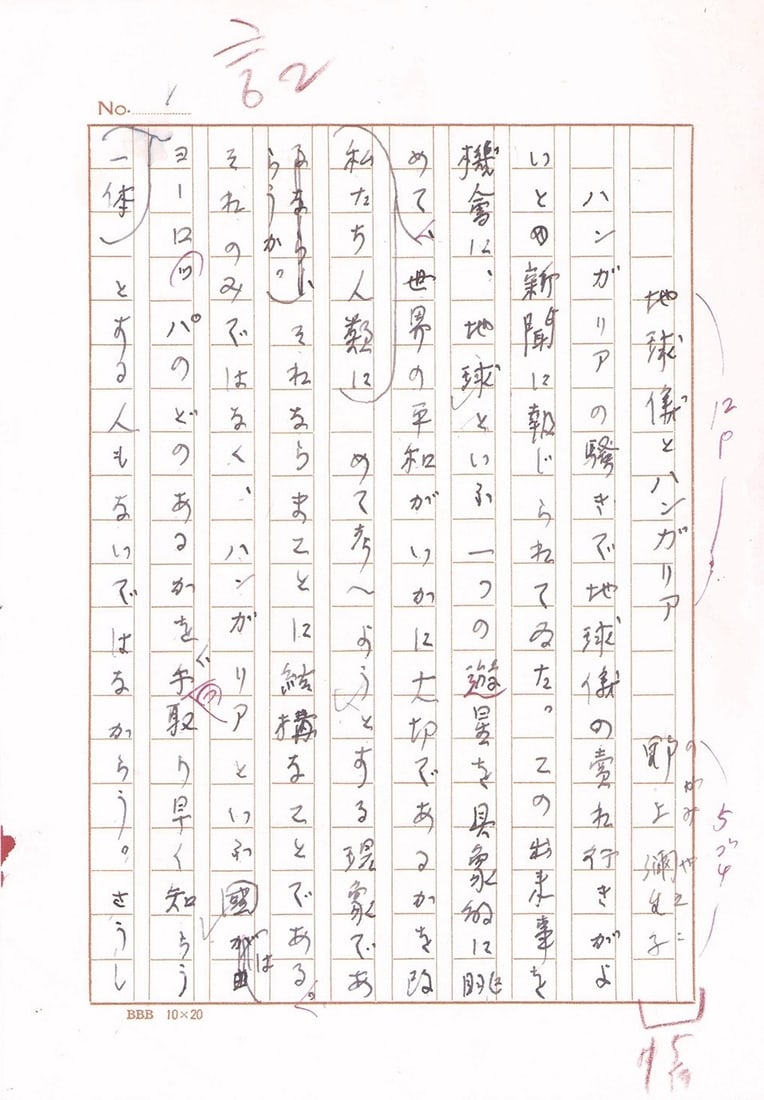 No. 1
地球儀とハンガリア 野上彌生子
のがみ やえこ
12P
ハンガリアの騒きで地球儀の賣れ行きがよ
いとの新聞に報じられてゐた。この出来事を
機會に、地球といふ一つの遊星を具象的に眺
めて、世界の平和がいかに大切であるかを改
めて考へようとする現象であ
私たち人類に
らうか。それならまことに結構なことである。
それのみではなく、ハンガリアといふ國は
ヨーロッパのどのあるかを手取り早く知らう
一体
とする人もないではなからう。さうし
BBB 10×20